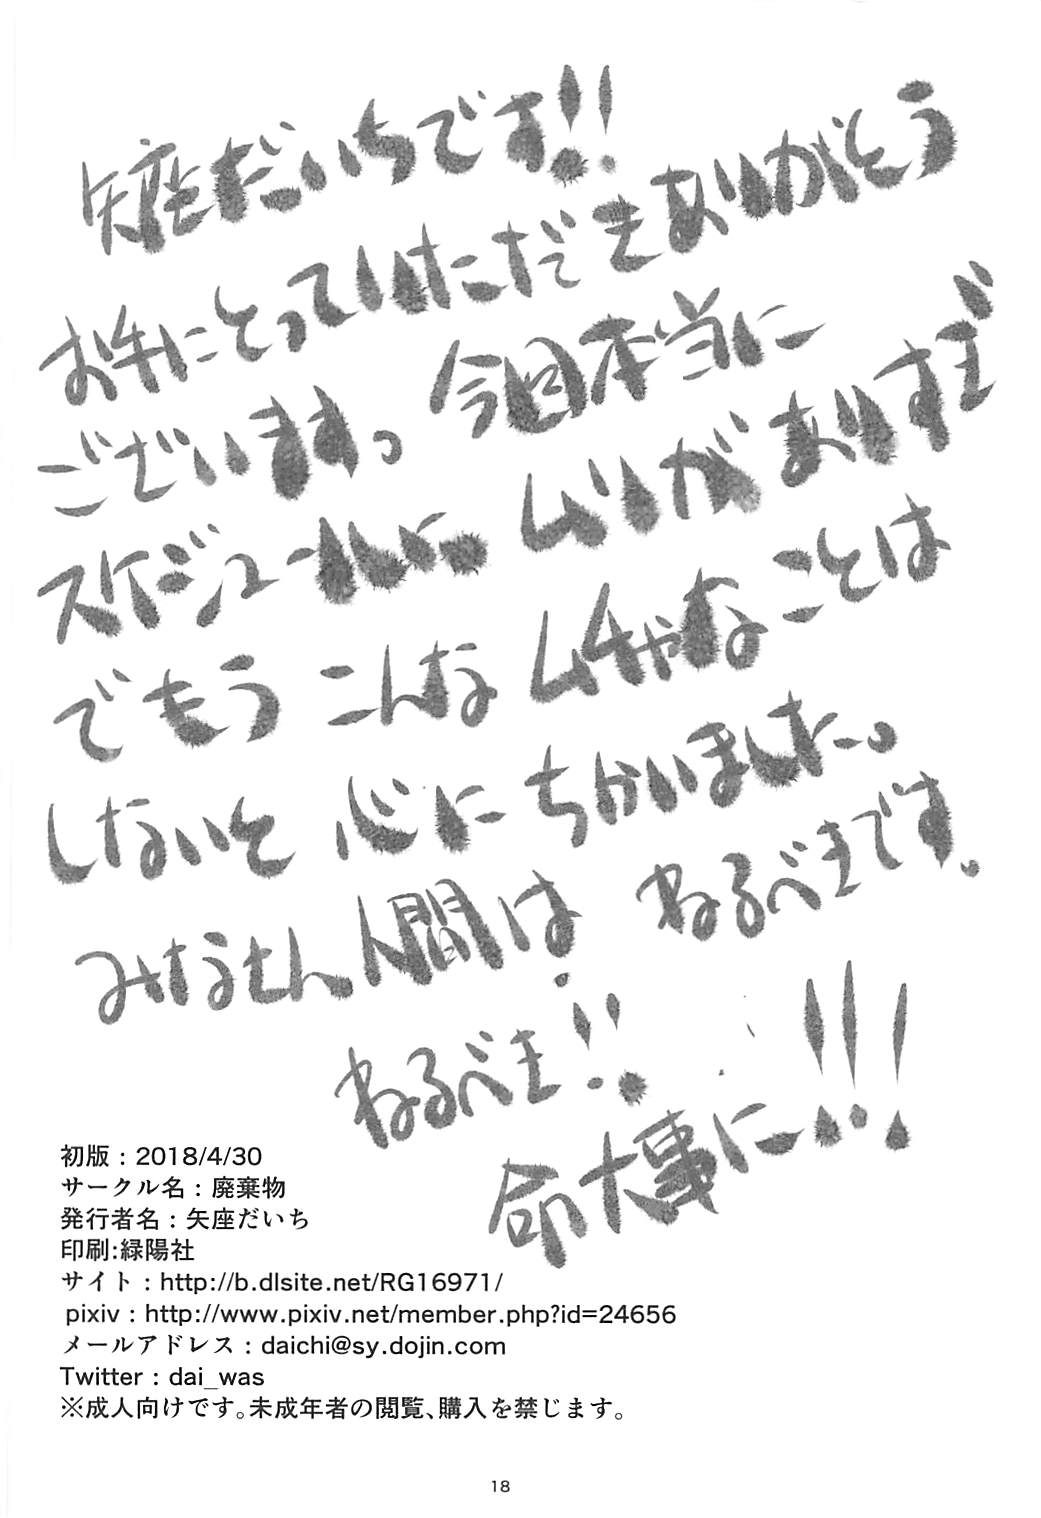 矢座だいちです!!
お手にとっていただきありがとう
ございます。今回本当に
スケジュールに。ムリがありすぎ
でもう こんな ムチャなことは
しないと 心に ちかいました。
みなせん人間は ねるべきです。
ねるべき!!
命大事に!!!
初版：2018/4/30
サークル名：廃棄物
発行者名：矢座だいち
印刷:緑陽社
サイト：http://b.dlsite.net/RG16971/
pixiv：http://www.pixiv.net/member.php?id=24656
メールアドレス：daichi@sy.dojin.com
Twitter：dai_was
※成人向けです。未成年者の閲覧、購入を禁じます。
18